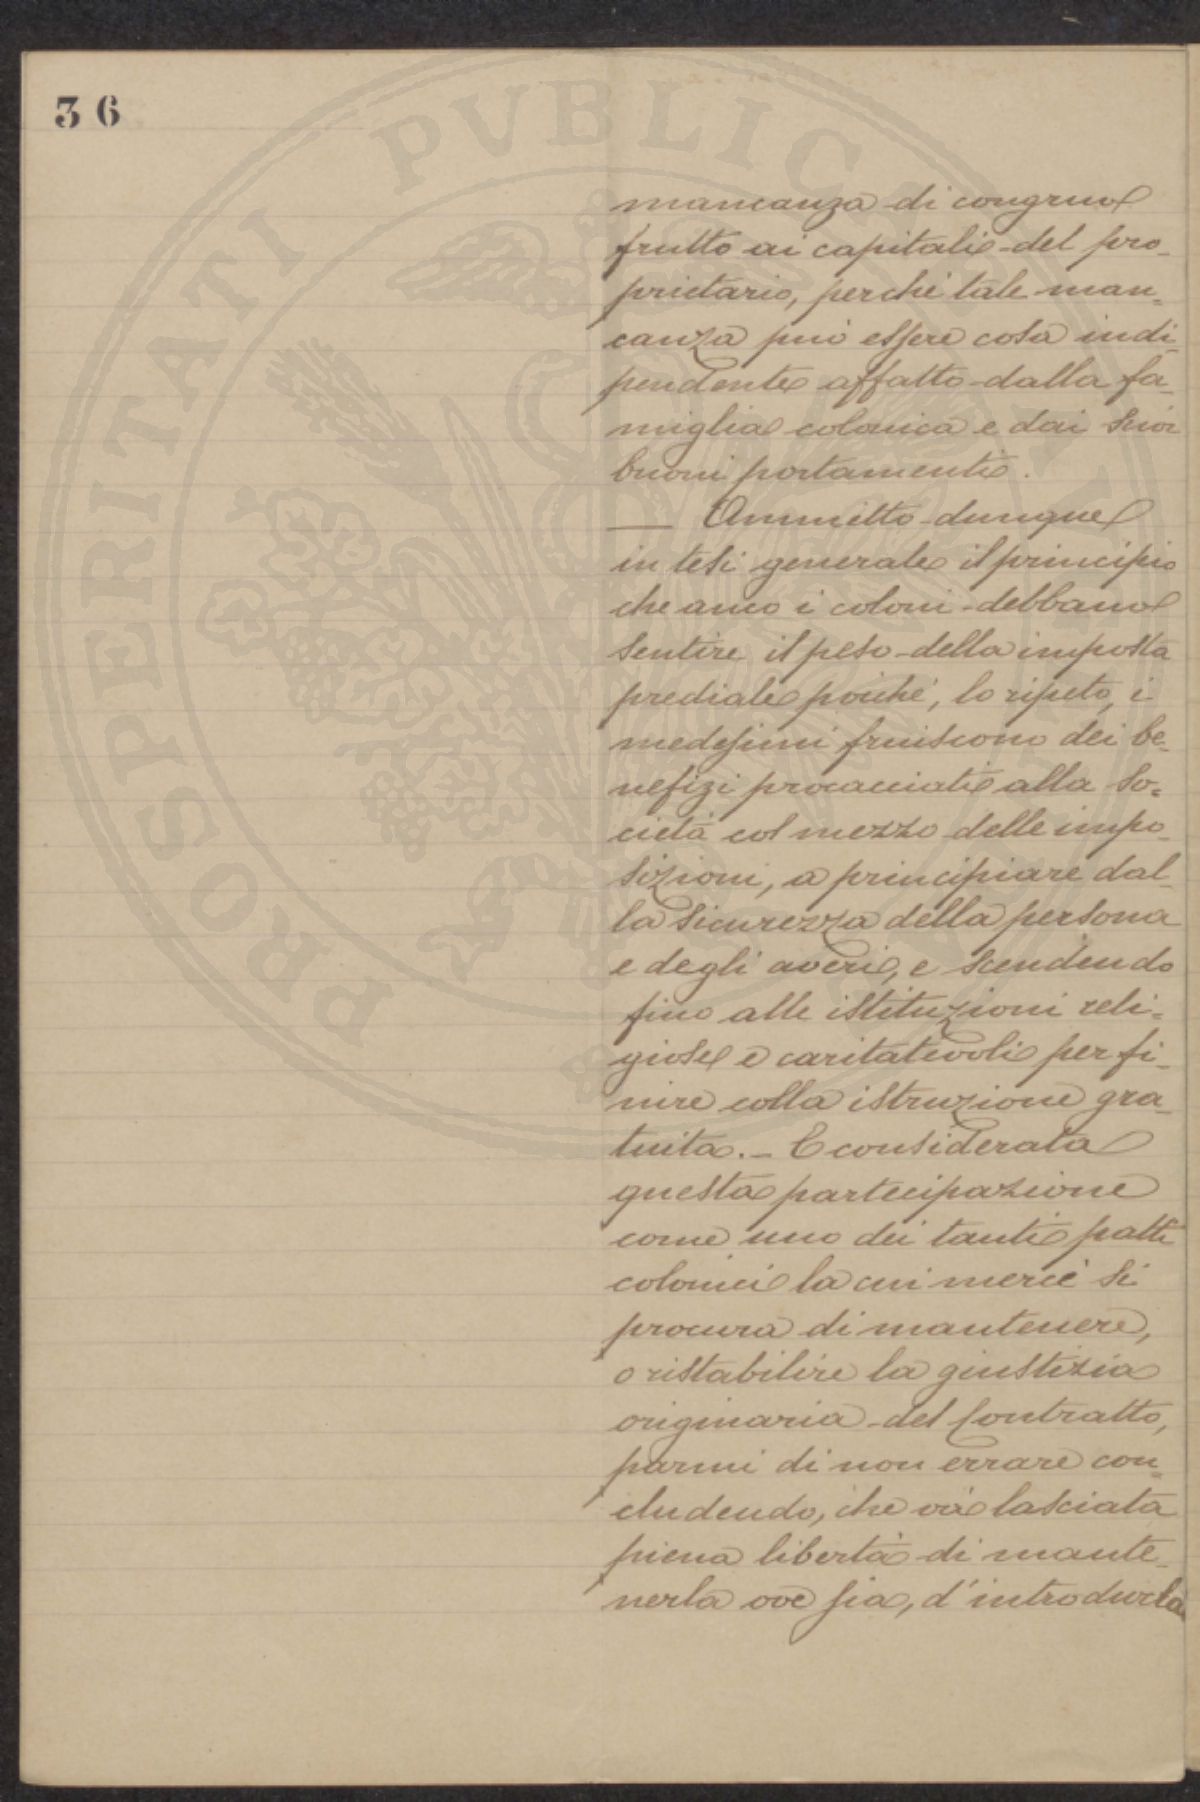 36
PROSPERITATI PUBLICAE
mancanza di congruo
frutto ai capitali del pro-
prietario, perché tale man-
canza può essere cosa indi-
pendente affatto dalla fa-
miglia colonica e dai suoi
buoni portamenti.
— Ammetto dunque
in tesi generale il principio
che anco i coloni debbano
sentire il peso della imposta
prediale poiché, lo ripeto, i
medesimi fruiscono dei be-
nefizi procacciati alla so-
cietà col mezzo delle impo-
sizioni, a principiare dal-
la sicurezza della persona
e degli averi, e scendendo
fino alle istituzioni reli-
giose e caritatevoli per fi-
nire colla istruzione gra-
tuita. – E considerata
questa partecipazione
come uno dei tanti patti
colonici la cui mercé si
procura di mantenere,
o ristabilire la giustizia
originaria del Contratto,
parmi di non errare con-
cludendo, che và lasciata
piena libertà di mante-
nerla ove sia, d'introdurla